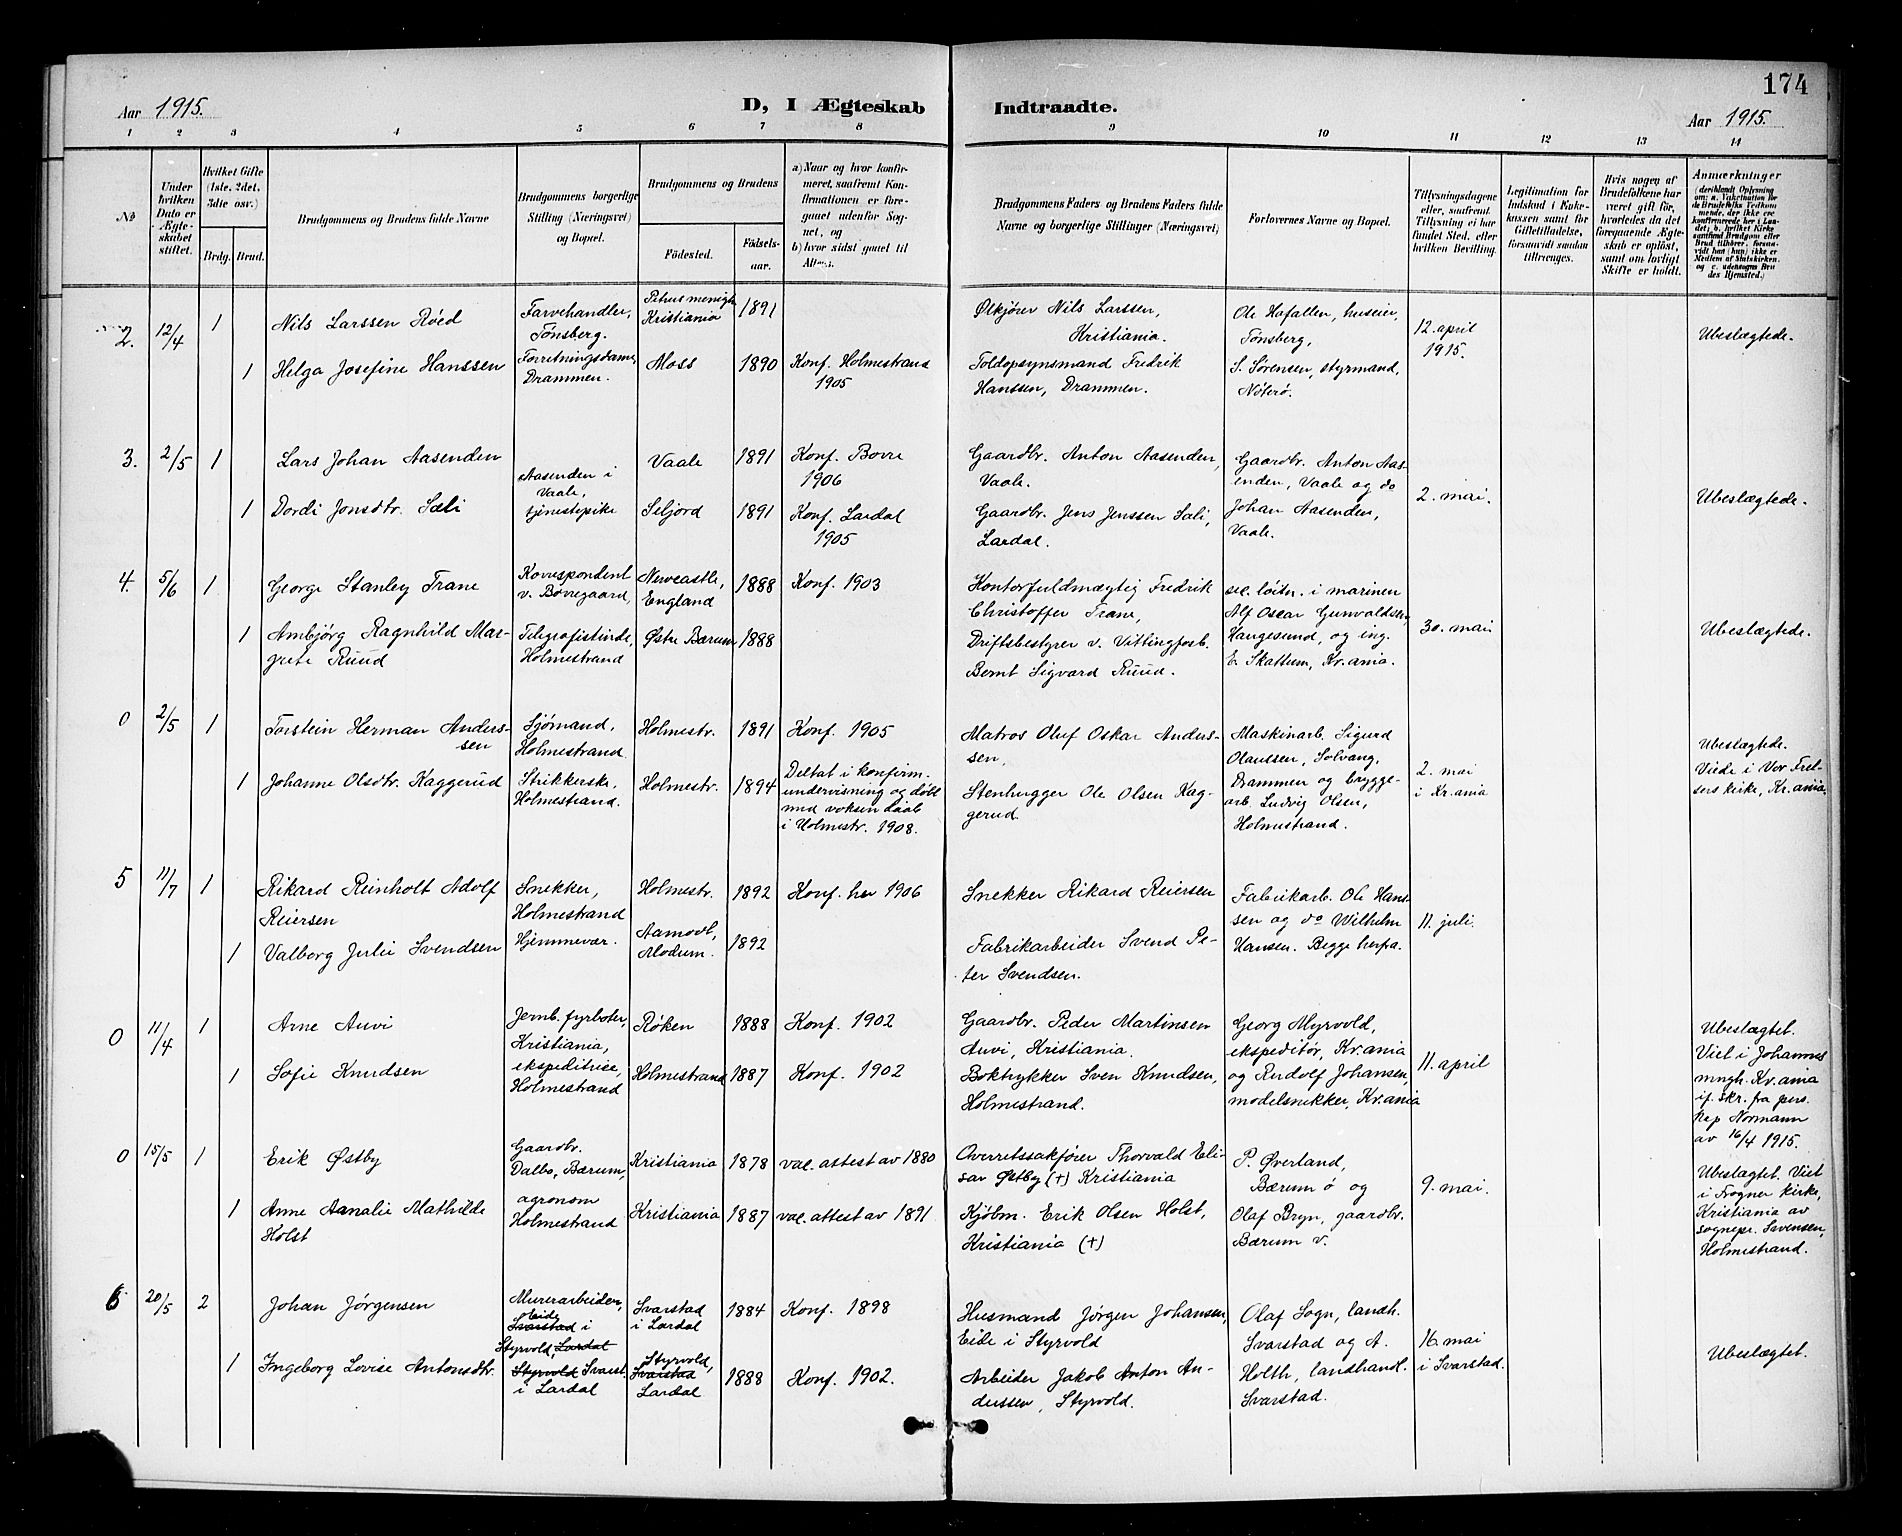 174
Aar 1915.
D, I Ægteskab
Indtraadte.
Aar 1915.
1 2 3 4 5 6 7 8
9 10 11 12 13 14
No
Under hvilken Dato er Ægteskabet stiftet.
Hvilket Gifte (1ste, 2det, 3die osv.)
Brdg. Brud.
Brudgommens og Brudens fulde Navne
Brudgommens borgerlige Stilling (Næringsvei) og Bopæl.
Brudgommens og Brudens
Födested.
Födselsaar.
a) Naar og hvor konfirmeret, saafremt Konfirmationen er foregaaet udenfor Sognet, og
b) hvor sidst gaaet til Alters.
Brudgommens Faders og Brudens Faders fulde Navne og borgerlige Stillinger (Næringsvei)
Forlovernes Navne og Bopæl.
Tillysningsdagene eller, saafremt Tillysning ei har fundet Sted, efter hvilken Bevilling.
Legitimation for Indskud i Enkekassen samt for Giftetilladelse, forsaavidt saadan tiltrænges.
Hvis nogen af Brudefolkene har været gift før, hvorledes da det foregaaende Ægteskab er oplöst, samt om lovligt Skifte er holdt.
Anmærkninger
2. 12/4 1
Nils Larssen Röed
Farvehandler,
Tønsberg.
Petrus menigh.
Kristiania
1891
Ølkjører Nils Larssen,
Kristiania.
Ole Hafallen, huseier,
Tønsberg,
S. Sörensen, styrmand,
Nöterö.
12. april
1915.
Ubeslægtede.
1
Helga Josefine Hanssen
Forretningsdame,
Drammen.
Moss
1890
Konf. Holmestrand
1905
Toldopsynsmand Fredrik
Hanssen, Drammen.
3. 2/5 1
Lars Johan Aasenden
Aasenden i
Vaale,
Vaale
1891
Konf. Borre
1906
Gaardbr. Anton Aasenden,
Vaale.
Gaardbr. Anton Aas-
enden, Vaale og do
Johan Aasenden,
Vaale.
2. mai.
Ubeslægtede.
1
Dordi Jonsdtr. Sæli
tjenestepike
Seljord
1891
Konf. Lardal
1905
Gaardbr. Jens Jenssen Sæli,
Lardal.
4. 5/6 1
George Stanley Trane
Korrespondent
v. Bövegaard,
Newcastle,
England
1888
Konf. 1903
Kontorfuldmægtig Fredrik
Christoffer Trane,
sec. løitn. i marinen
Alf Oscar Gunvaldsen,
Haugesund, og ing.
E. Skattum, Kr.ania.
30. mai
Ubeslægtede.
1
Ambjörg Ragnhild Mar-
grete Ruud
Telegrafistinde,
Holmestrand
Østre Bærum
1888
Driftsbestyrer v. Vittingfosb.
Bernt Sigvard Ruud.
0 2/5 1
Torstein Herman Anders-
sen
Sjømand,
Holmestrand.
Holmestr.
1891
Konf. 1905
Matros Oluf Oskar Anders-
sen,
Maskinarb. Sigurd
Olaussen, Solvang,
Drammen og brygge-
arb. Ludvig Olsen,
Holmestrand.
2. mai
i Kr.ania
Ubeslægtede.
Viede i Vor Frel-
sers kirke, Kr.ania.
1
Johanne Olsdtr. Kaggerud
Strikkerske,
Holmestrand.
Holmestr.
1894
Deltat i konfirm.
undervisning og döbt
med voksen daab
i Holmestr. 1908.
Stenhugger Ole Olsen Kag-
gerud.
5 11/7 1
Rikard Reinholt Adolf
Reiersen
Snekker,
Holmestrand
Holmestr.
1892
Konf. her 1906
Snekker Rikard Reiersen
Fabrikarb. Ole Hans-
sen og do Wilhelm
Hansen. Begge herfra.
11. juli.
1
Valborg Julie Svendsen
Hjemmevær.
Aamodt,
Modum.
1892
Fabrikarbeider Svend Pe-
ter Svendsen.
0 11/4 1
Arne Auvi
Jernb. fyrböter,
Kristiania,
Røken
1888
Konf. 1902
Gaardbr. Peder Martinsen
Auvi, Kristiania.
Georg Myrvold,
ekspeditör, Kr.ania
og Rudolf Johansen,
modelsnekker, Kr.ania
11. april
Ubeslægtet.
Viet i Johannes
mngh. Kr.ania
if. skr. fra pers.
kap Normann
av 16/4 1915.
1
Sofie Knudsen
ekspeditrice,
Holmestrand
Holmestrand
1887
Konf. 1902
Boktrykker Sven Knudsen,
Holmestrand.
0 15/5 1
Erik Østby
Gaardbr.
Dalbo, Bærum,
Kristiania
1878
vac. attest av 1880
Overretssakfører Thorvald Eli-
sar Østby (+) Kristiania
P. Øverland,
Bærum ö og
Olaf Bryn, gaardbr.
Bærum v.
9. mai.
Ubeslægtet. Viet
i Frogner kirke,
Kristiania av
sognepr. Svensen,
Holmestrand.
1
Anne Amalie Mathilde
Holst
agronom
Holmestrand
Kristiania
1887
vac. attest av 1891
Kjøbm. Erik Olsen Holst,
Kristiania (+)
6 20/5 2
Johan Jörgensen
Murerarbeider,
Eide
Svarstad i
Styrvold, Lardal
Svarstad
i Lardal
1884
Konf. 1898
Husmand Jørgen Johansen,
Eide i Styrvold
Olaf Sogn, landh.
Svarstad og A.
Holth, landhandl.
Svarstad.
16. mai
i Svarstad.
Ubeslægtet.
1
Ingeborg Lovise Antonsdtr.
Styrvold Svarst.
i Lardal
Styrvold,
Svarstad
Lardal
1888
Konf. 1902.
Arbeider Jakob Anton An-
derssen, Styrvold.